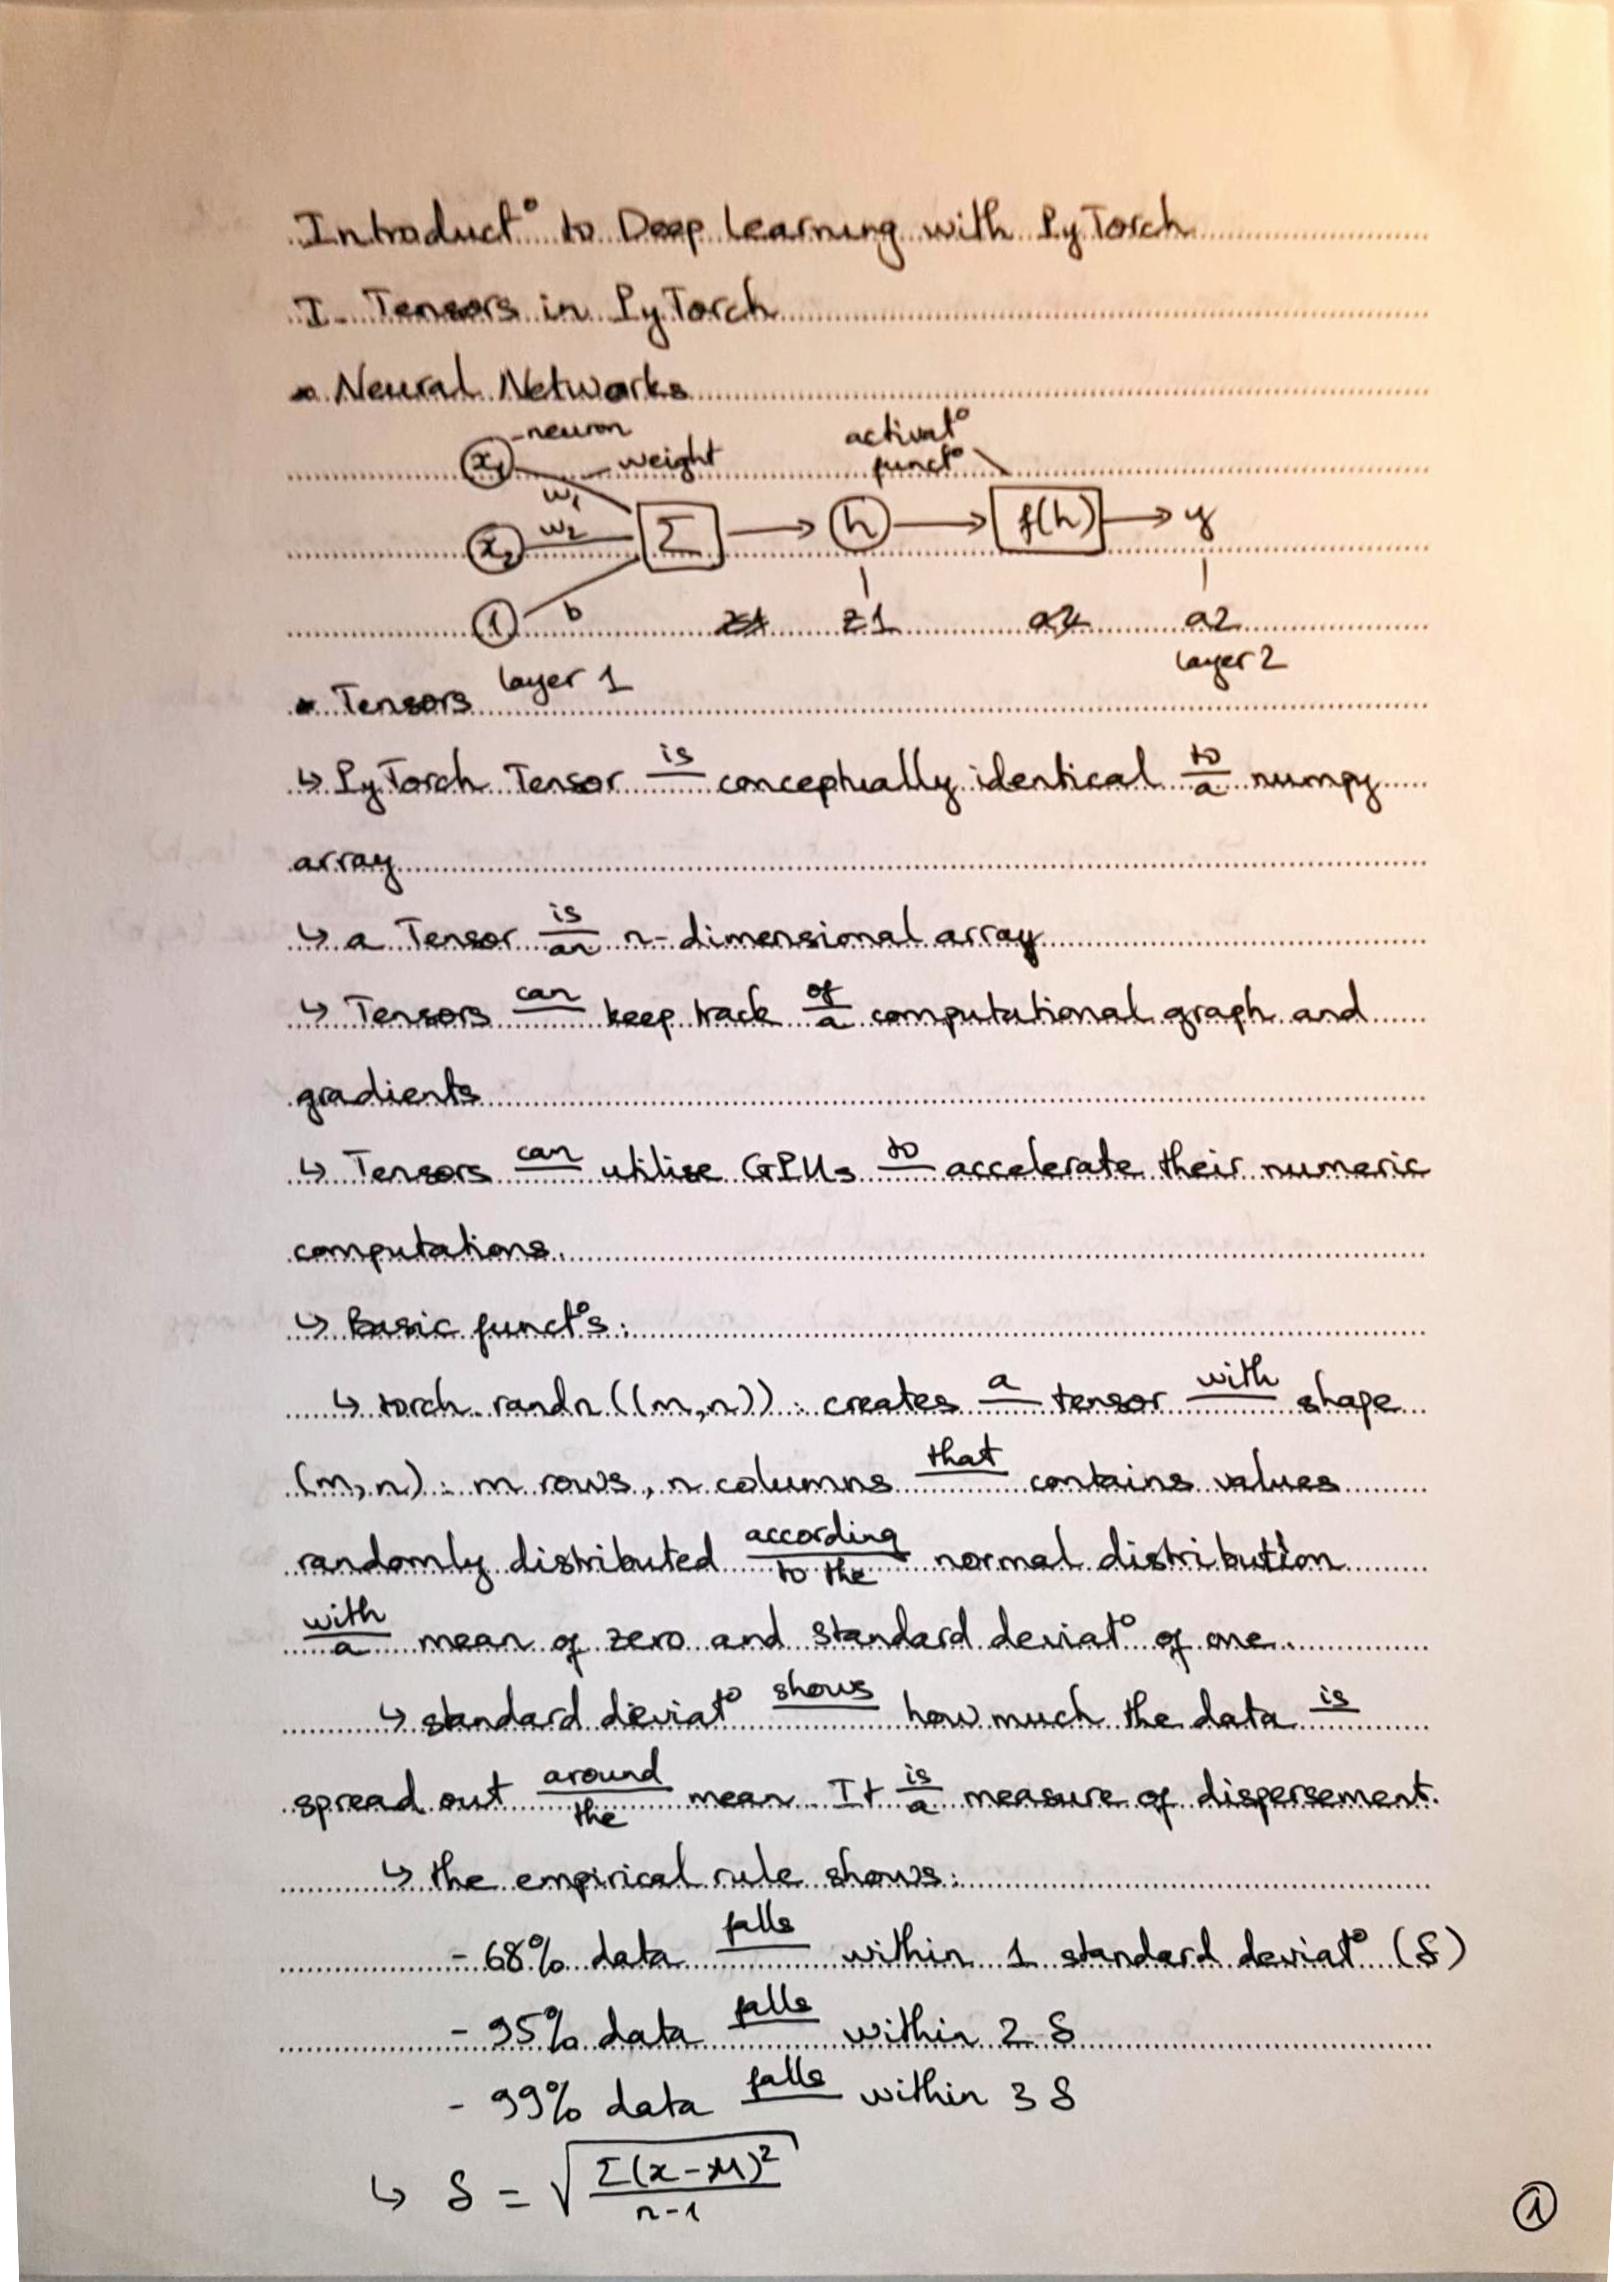 Introduct° to Deep Learning with PyTorch
I- Tensors in PyTorch
Neural Networks
neuron
activat°
x1
weight
funct°
w1
x2
w2
Σ
h
f(h)
y
1
b
z1
a2
layer 1
layer 2
Tensors
↳ PyTorch Tensor is conceptually identical to a numpy
array
↳ a Tensor is an n-dimensional array
↳ Tensors can keep track of a computational graph and
gradients
↳ Tensors can utilise GPUs to accelerate their numeric
computations.
↳ Basic funct°s:
↳ torch.randn((m,n)): creates a tensor with shape
(m,n): m rows, n columns that contains values
randomly distributed according to the normal distribution
with a mean of zero and standard deviat° of one.
↳ standard deviat° shows how much the data is
spread out around the mean. It is a measure of dispersement.
↳ the empirical rule shows:
- 68% data falls within 1 standard deviat° (δ)
- 95% data falls within 2 δ
- 99% data falls within 3 δ
↳ δ = √(Σ(x-μ)²/(n-1))
1